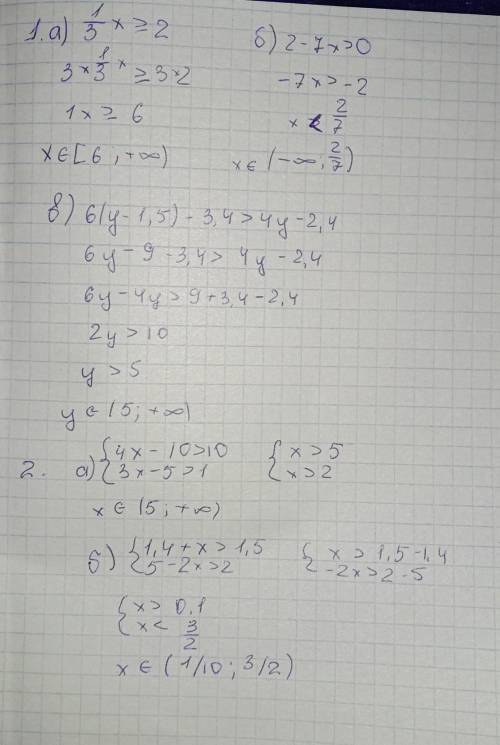 1. а) 1/3 x ≥ 2
3 × 1/3 x ≥ 3×2
1x ≥ 6
x∈[6 ; +∞)
б) 2-7x>0
-7x>-2
x < 2/7
x∈ (-∞; 2/7)
в) 6(y-1,5) - 3,4>4y-2,4
6y - 9 - 3,4> 4y - 2,4
6y-4y>9+3,4-2,4
2y>10
y > 5
y ∈ (5; +∞)
2. а) {4x - 10>10 {x > 5
3x-5>1 x>2
x ∈ (5; +∞)
б) {1,4 + x > 1,5 {x > 1,5-1,4
5-2x>2 -2x>2-5
{x> 0,1
x < 3/2
x ∈ (1/10 ; 3/2)